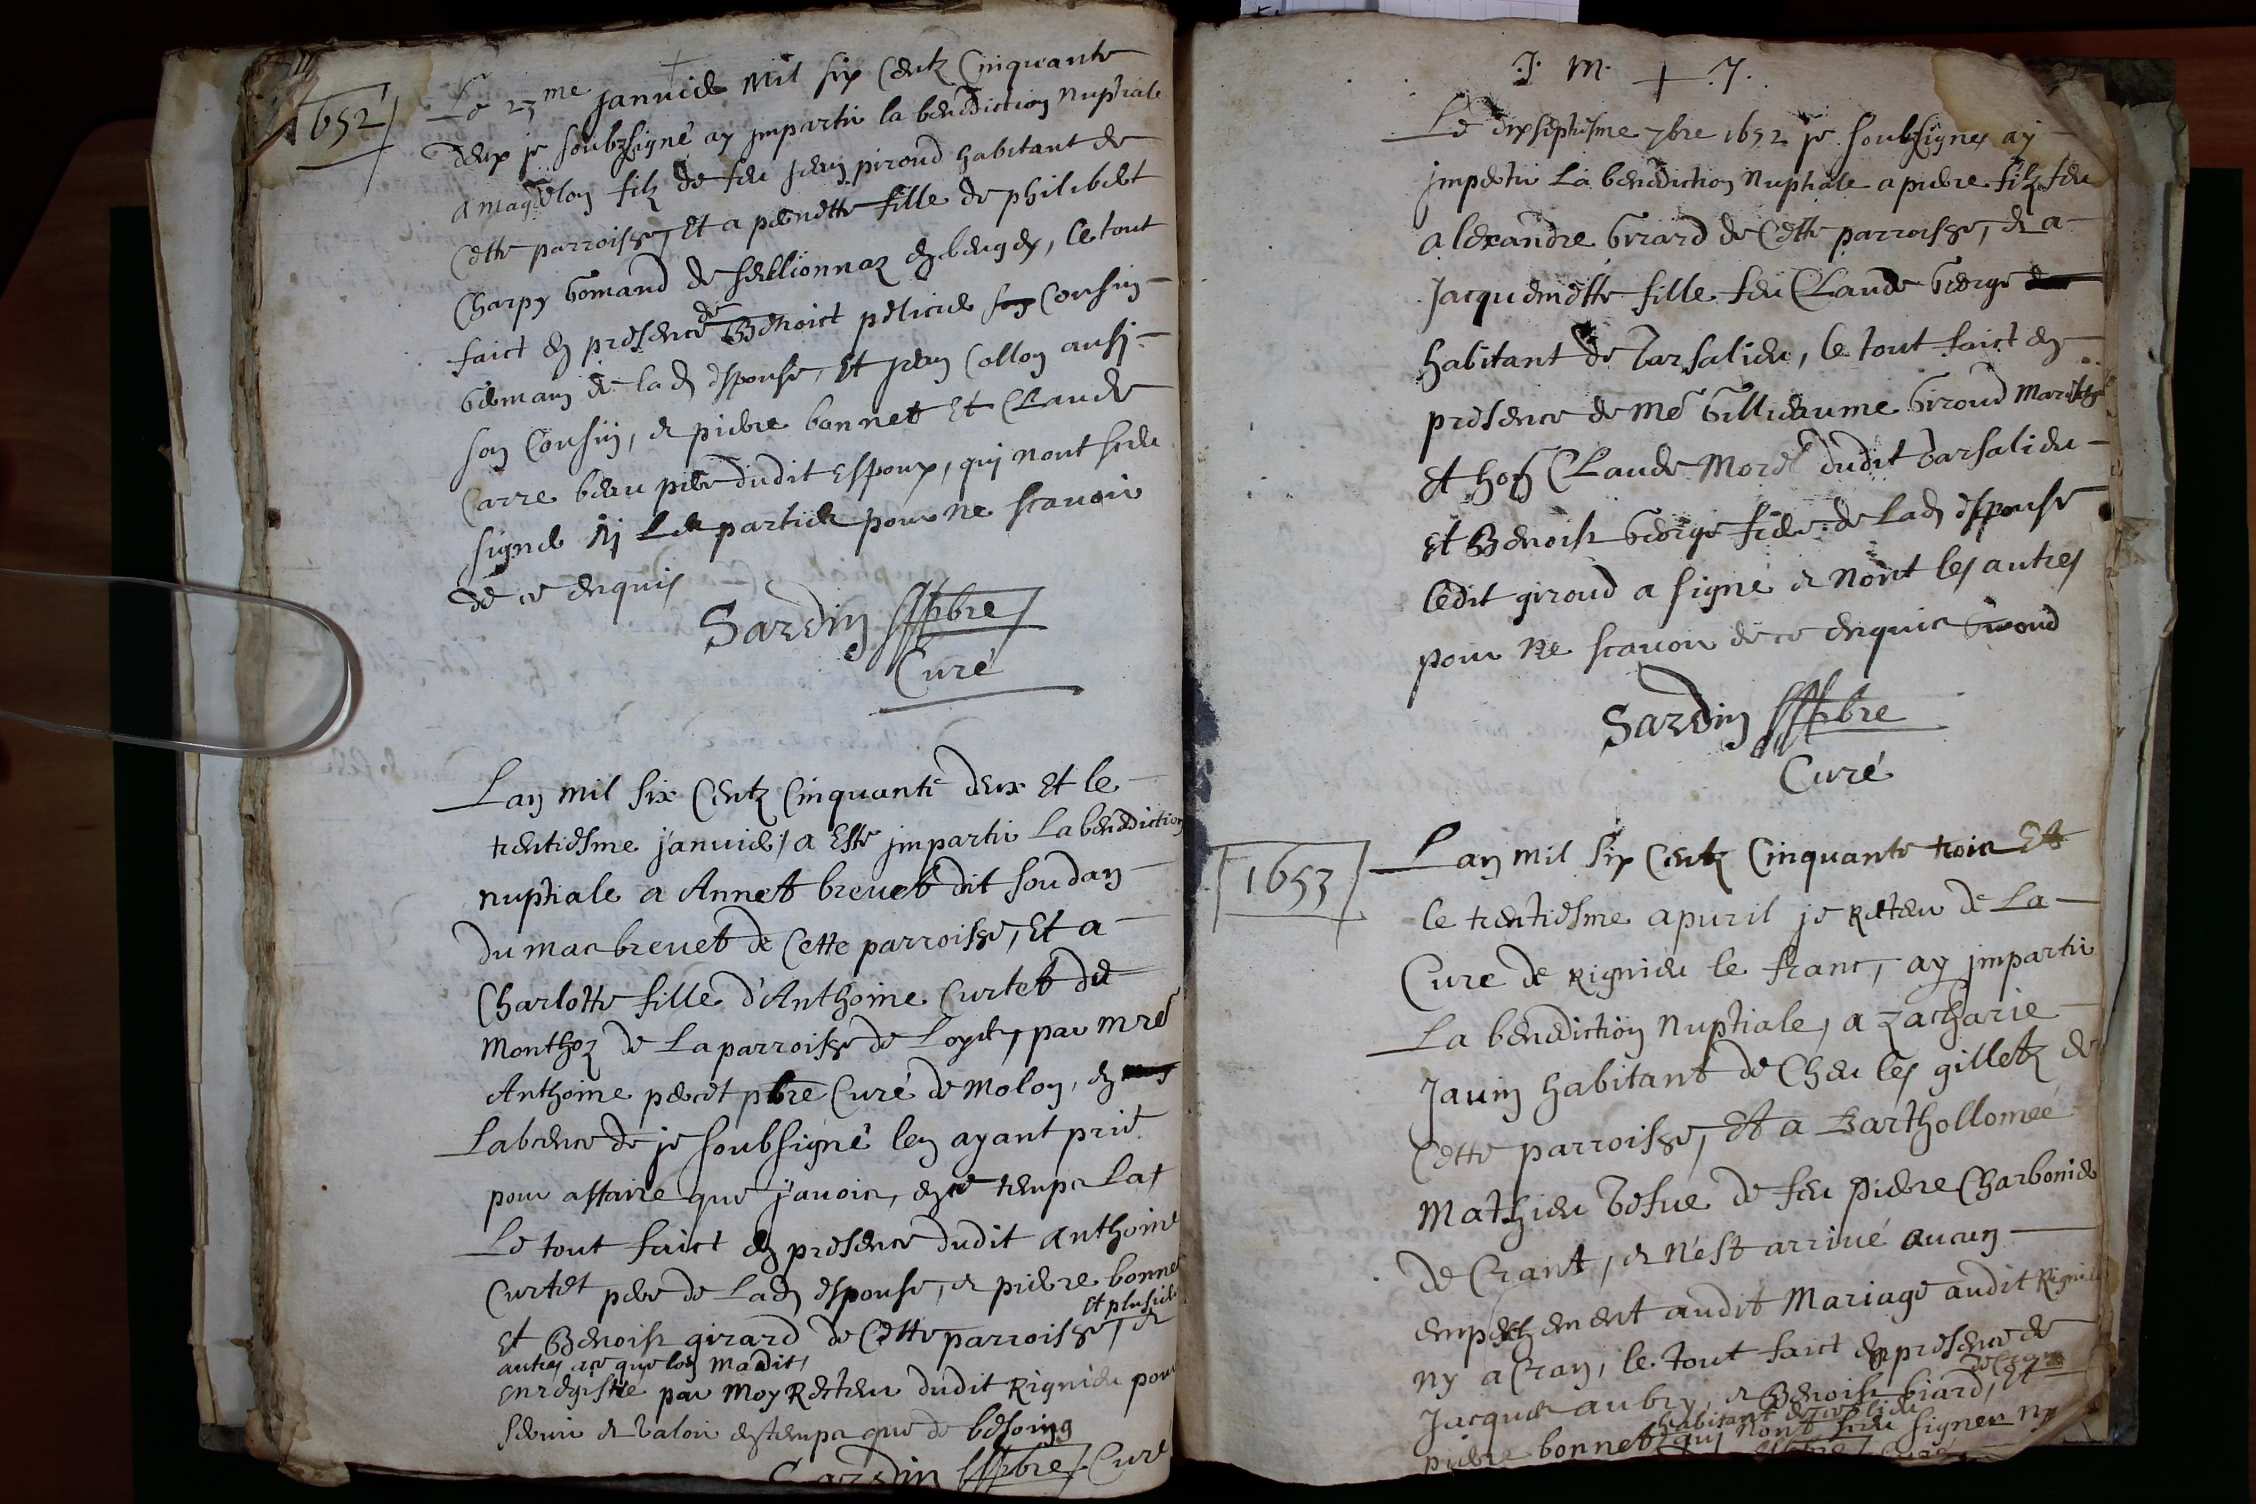 1652
Le 23me janvier mil six centz cinquante
deux je soubzsigné ay jmparti la benediction nuptiale
a filz de feu jean piroud habitant de
Cette parroisse, Et a pernette fille de philibert
Charpy gomand de en beugey, le tout
faict en presence de Benoict pelicier son Cousin
germain de lad espouse, Et jean Collon ausi
son Cousin, et pierre bonnet Et Claude
Carre beau pere dudit Espoux, qui nont sceu
signer nj Les parties pour ne scavoir
de ce enquis
Sardin pbre
Curé
Lan mil six Centz Cinquante deux Et le
trentiesme januier a Esté jmparti La benediction
nuptiale a Annet brevet dit soudan
du mas brevet de Cette parroisse, Et a
Charlotte fille d'Anthoine Curtet de
Monthoz de La parroisse de Loyes, par mre
Anthoine peret pbre Curé de Molon, en
Labcence de je soubsigné len ayant prié
pour affaire que j'avois, en ce temps La,
Le tout faict en presence dudit Anthoine
Curtet pere de Lad espouse, et pierre bonnet
Et Benoist girard de Cette parroisse, et
Et plusieurs
autres a ce que lon Madit,
enregistre par Moy Recteur dudit Rignieu pour
servir et valoir en temps que de besoing
Sardin pbre Curé
.J. M. + .J.
Le dixseptiesme 7bre 1652 je soubsignes ay
jmparti La benediction Nuptiale a pierre filz feu
alexandre girard de Cette parroisse, et a
Jacquemette fille feu Claude george
habitant de Varsalieu, le tout faict en
presence de Me Guilleaume Giroud
Et hon Claude Morel dudit Varsalieu
Et Benoist george frere de Lad espouse
ledit giroud a signé et Nont les autres
pour Ne scavoir de ce enquis Giroud
Sardin pbre
Curé
1653
Lan mil six Centz Cinquante trois Et
le trentiesme apuril je Recteur de La
Cure de Rignieu le franc, ay jmparti
La benediction Nuptiale, a Zacharie
Javin habitant de Cheu les gilletz de
Cette parroisse, Et a Barthollomée
Mathieu Vefue de feu Pierre Charbonier
de Crant, et N'est arriué aucun
empeschement audit Mariage audit Rignieu
ny a Cran, le tout faict en presence de
Jacques aubry, et Benoist biard, Et
de Cran
habitant de ce lieu
pierre bonnet qui Nont sceu signer ny
pbre Curé